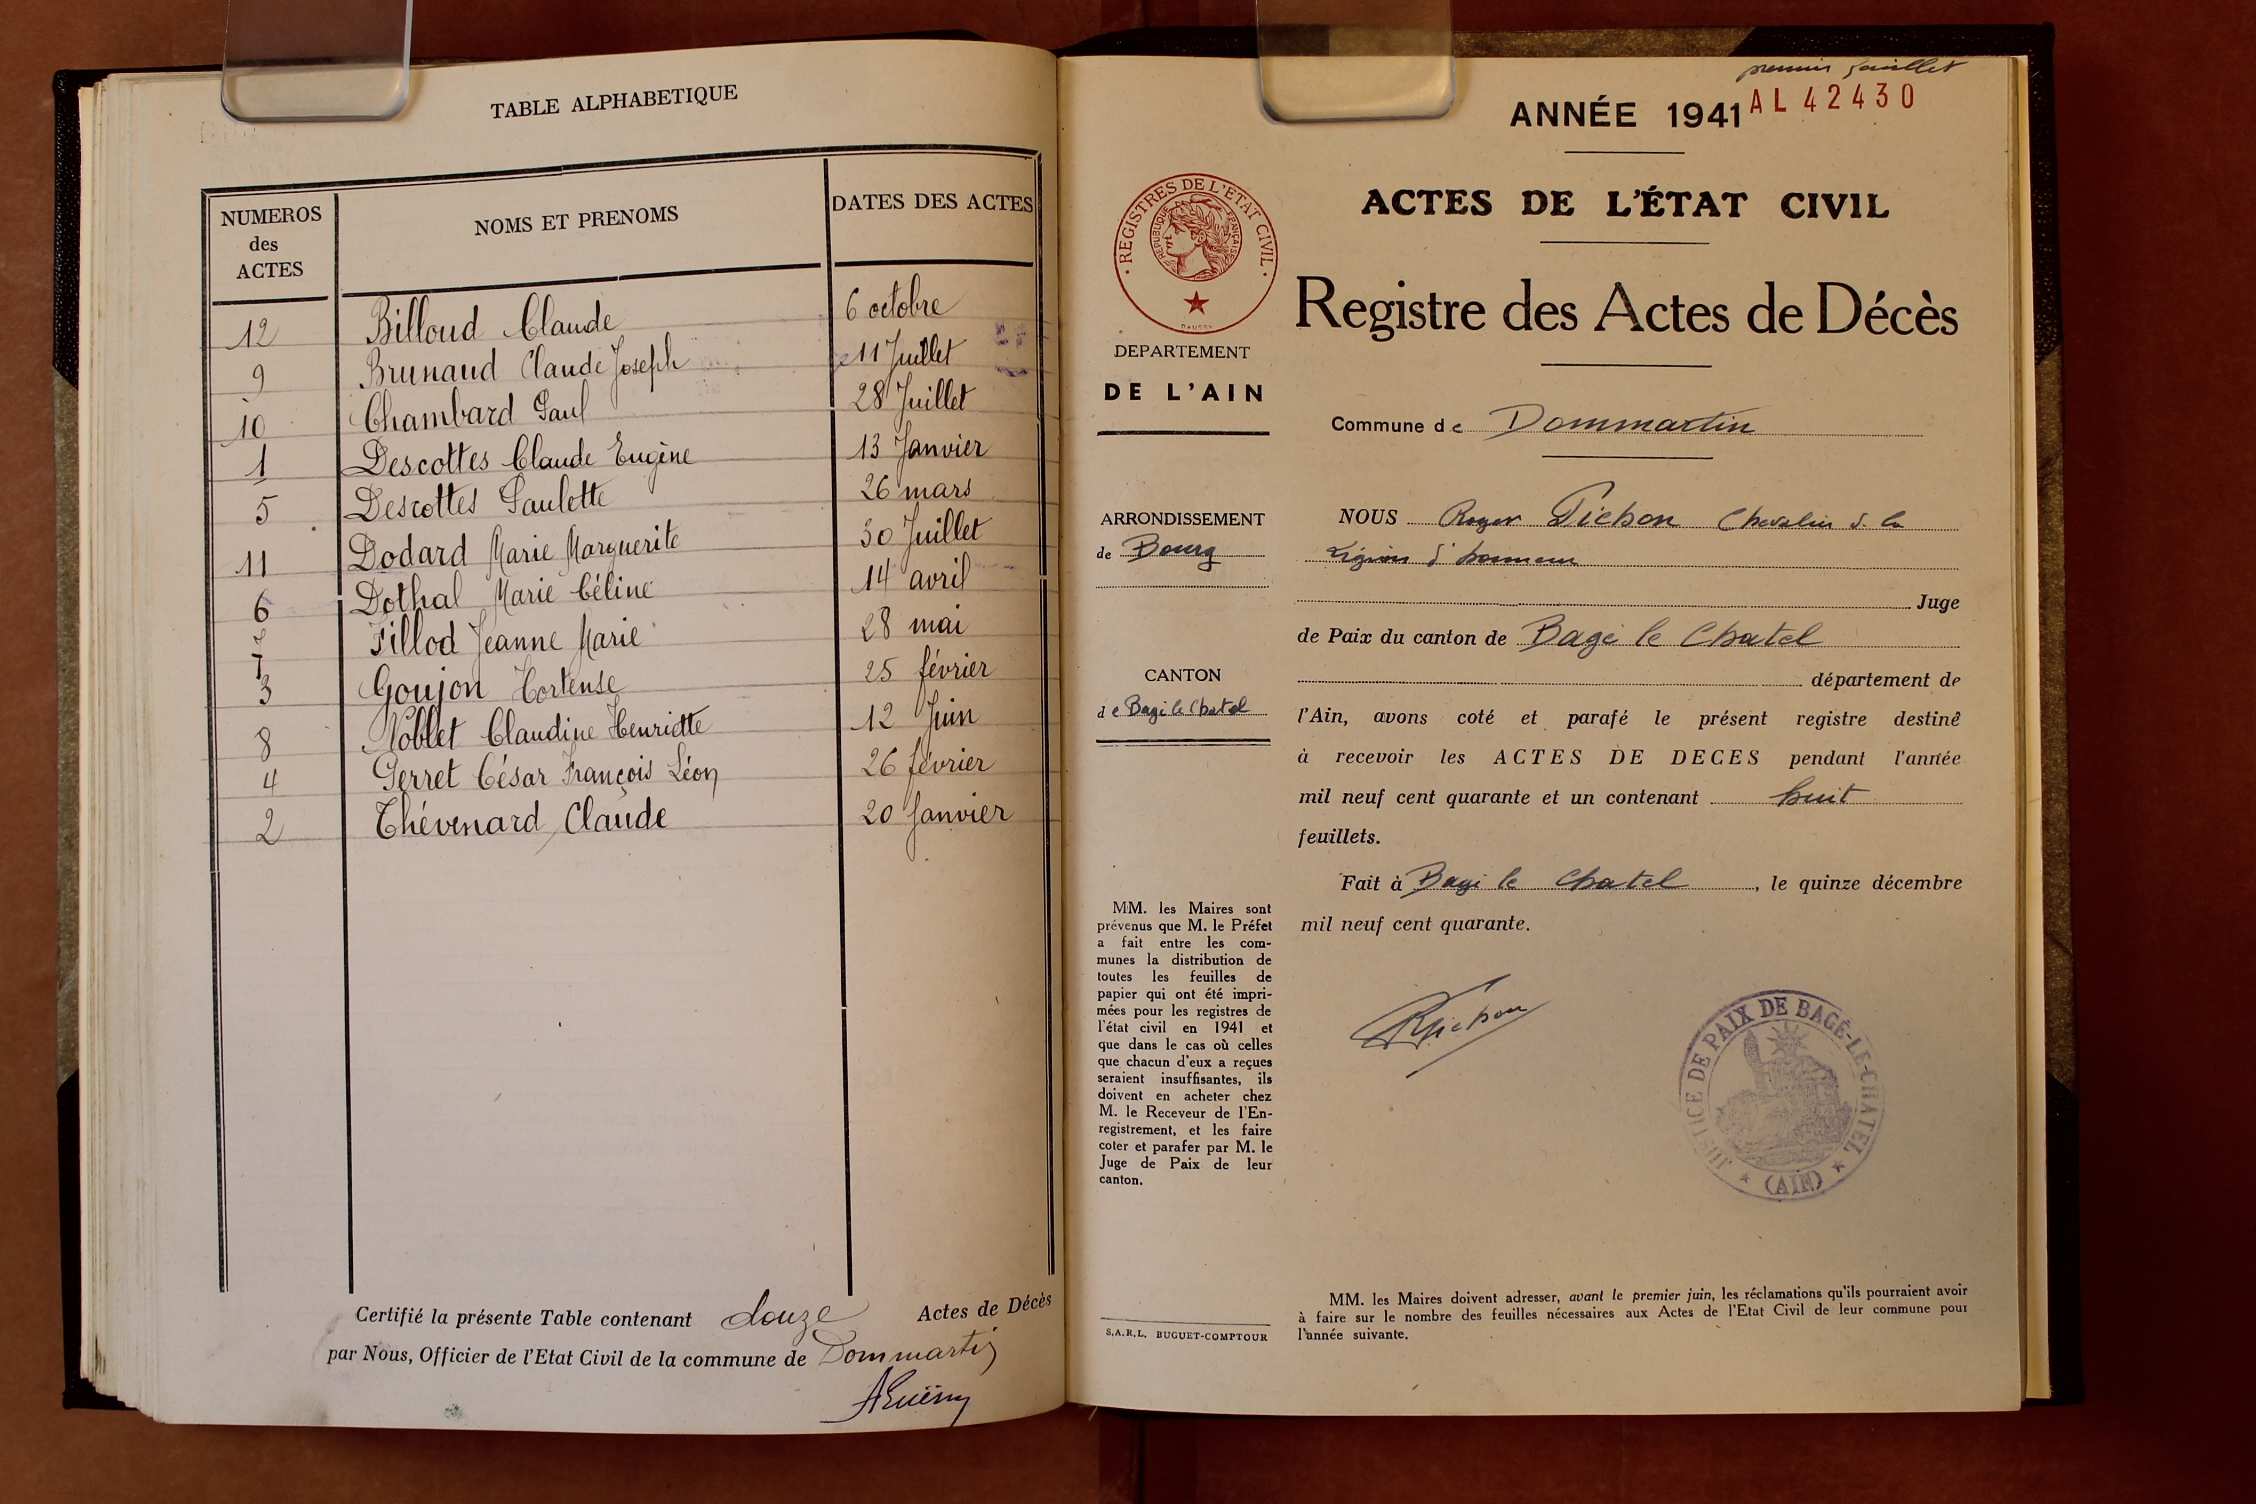 TABLE ALPHABETIQUE
NUMEROS des ACTES NOMS ET PRENOMS DATES DES ACTES
12 Billoud Claude 6 octobre
9 Brunaud Claude Joseph 11 Juillet
10 Chambard Paul 28 Juillet
1 Descottes Claude Eugène 13 Janvier
5 Descottes Paulette 26 mars
11 Dodard Marie Marguerite 30 Juillet
6 Dothal Marie Céline 14 avril
7 Fillod Jeanne Marie 28 mai
3 Goujon Hortense 25 février
8 Noblet Claudine Henriette 12 Juin
4 Perret César François Léon 26 février
2 Thévenard Claude 20 Janvier
Certifié la présente Table contenant douze Actes de Décès
par Nous, Officier de l'Etat Civil de la commune de Dommartin
premier feuillet
ANNÉE 1941 AL 42430
ACTES DE L'ÉTAT CIVIL
REGISTRES DE L'ETAT CIVIL
REPUBLIQUE FRANÇAISE
Registre des Actes de Décès
DEPARTEMENT
DE L'AIN
Commune de Dommartin
ARRONDISSEMENT
de Bourg
CANTON
de Bagé le Chatel
NOUS Roger Pichon Chevalier de la
Légion d'honneur
Juge
de Paix du canton de Bagé le Chatel
département de
l'Ain, avons coté et parafé le présent registre destiné
à recevoir les ACTES DE DECES pendant l'année
mil neuf cent quarante et un contenant huit
feuillets.
Fait à Bagé le Chatel, le quinze décembre
mil neuf cent quarante.
RPichon
JUSTICE DE PAIX DE BAGÉ-LE-CHATEL
(AIN)
MM. les Maires sont
prévenus que M. le Préfet
a fait entre les com-
munes la distribution de
toutes les feuilles de
papier qui ont été impri-
mées pour les registres de
l'état civil en 1941 et
que dans le cas où celles
que chacun d'eux a reçues
seraient insuffisantes, ils
doivent en acheter chez
M. le Receveur de l'En-
registrement, et les faire
coter et parafer par M. le
Juge de Paix de leur
canton.
S.A.R.L. BUGUET-COMPTOUR
MM. les Maires doivent adresser, avant le premier juin, les réclamations qu'ils pourraient avoir
à faire sur le nombre des feuilles nécessaires aux Actes de l'Etat Civil de leur commune pour
l'année suivante.